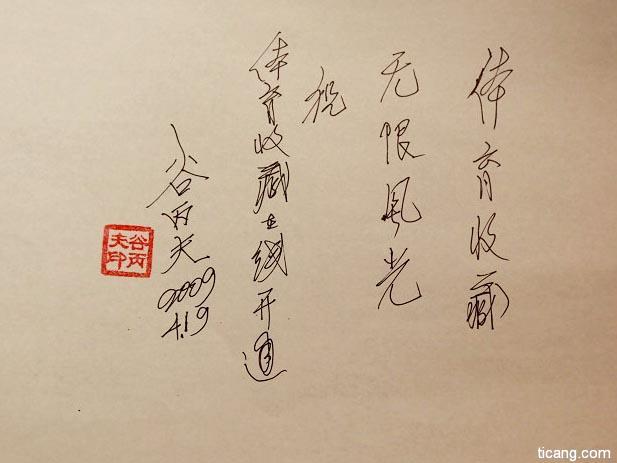 体育收藏
无限风光
祝
体育收藏在线开通
谷丙夫
2009
4.19
谷丙夫印
ticang.com